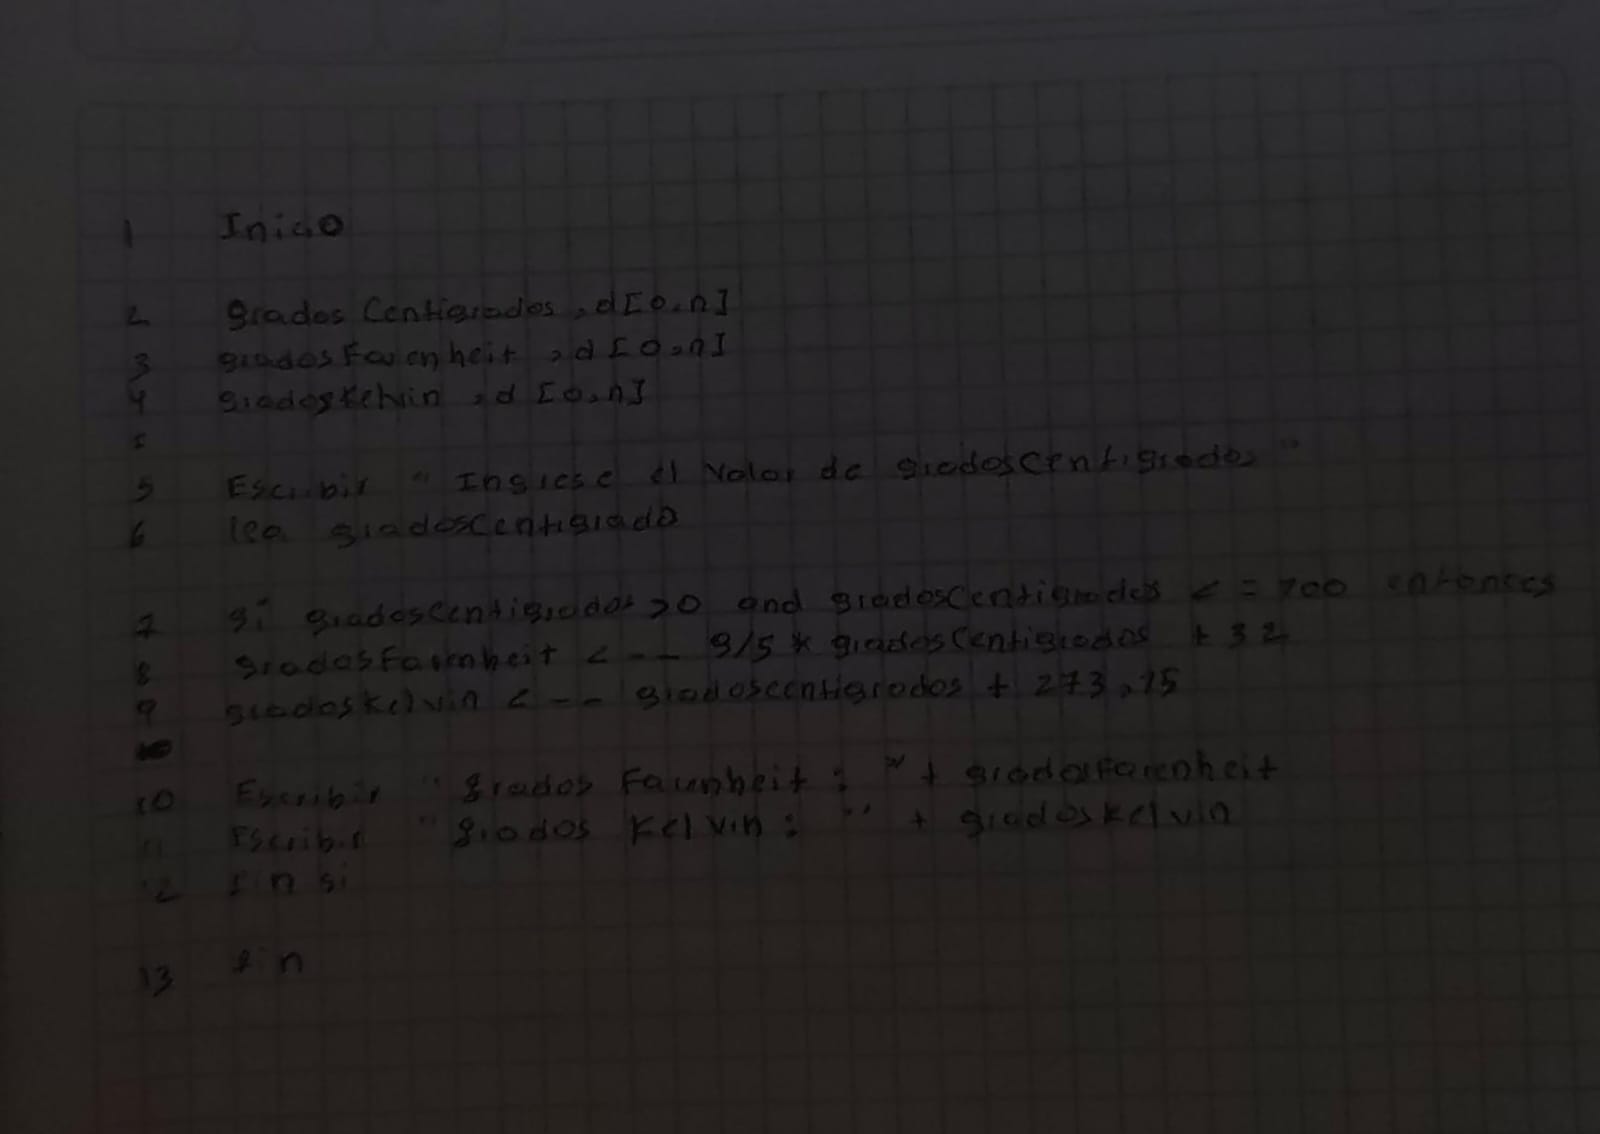 1 Inicio
2 grados Centigrados, d[0,n]
3 gradosFarenheit, d[0,n]
4 gradosKelvin, d[0,n]
5
5 Escribir "Ingrese el valor de gradosCentigrados"
6 lea gradosCentigrado
7 si gradosCentigrados >0 and gradosCentigrados <= 100 entonces
8 gradosFarenheit <-- 9/5 * gradosCentigrados + 32
9 gradosKelvin <-- gradoscentigrados + 273,15
10 Escribir "grados Farenheit: " + gradosFarenheit
11 Escribir "grados Kelvin: " + gradoskelvin
12 fin si
13 fin